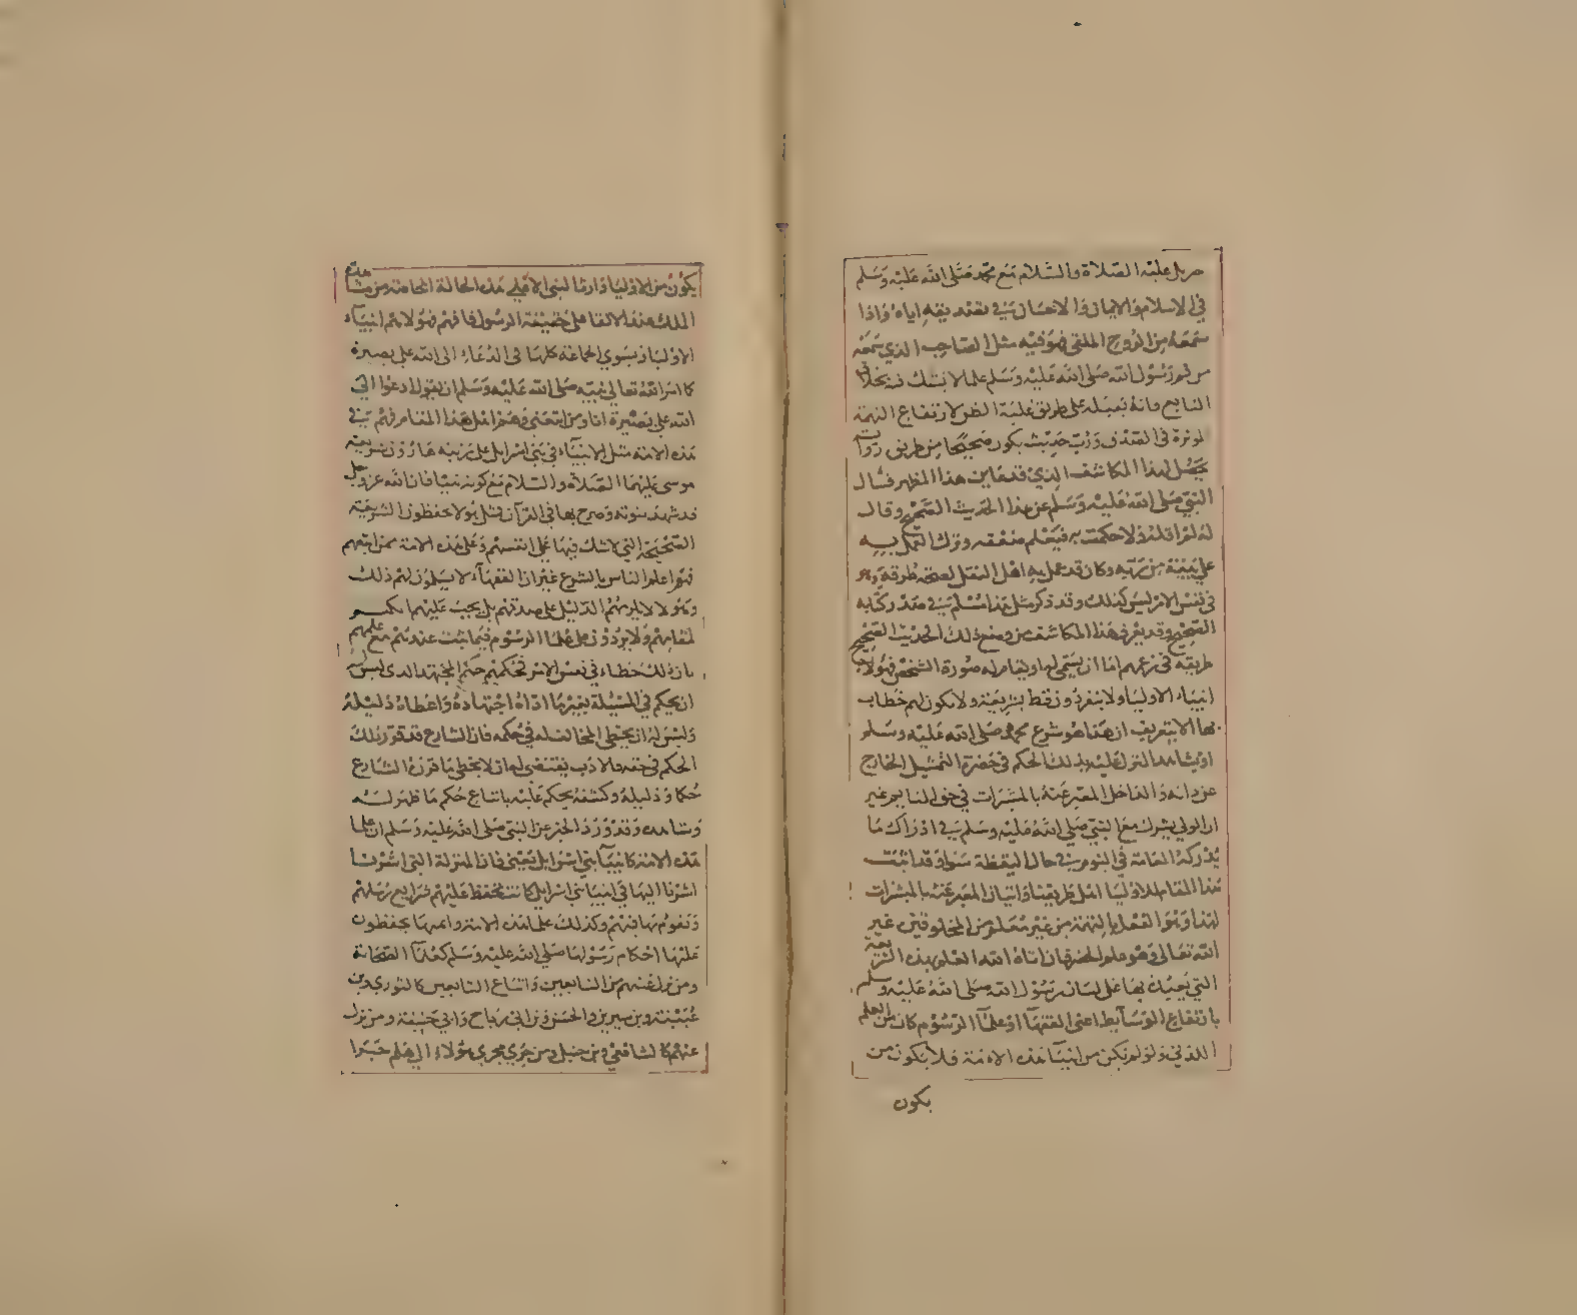 جبريل عليه الصلاة والسلام مع محمد صلى الله عليه وسلم
في الاسلام والايمان والاحسان في تصديقه اياه واذا
سمعه من الروح الملقي فهو فيه مثل الصاحب الذي سمعه
من فم رسول الله صلى الله عليه وسلم علما لا يشك فيه بخلاف
التابع فانه يقبله على طريق غلبة الظن لارتفاع التهمة
المؤثرة في الصدق ورب حديث يكون صحيحا من طريق رواته
يحصل لهذا المكاشف الذي قد عاين هذا المظهر فسال
النبي صلى الله عليه وسلم عن هذا الحديث الصحيح وقال
له لم اقله ولا حكمت به فيعلم ضعفه وترك العمل به
على بينة من ربه وكان قد عمل به اهل النقل لصحة طرقه وهو
في نفس الامر ليس كذلك وقد ذكر مثل هذا مسلم في صدر كتابه
الصحيح وقد يعرف هذا المكاشف من وضع ذلك الحديث الصحيح
طريقه في زعمهم اما ان يسمى له او يقام له صورة الشخص فهؤلاء
انبياء الاوليا ولا ينفردون قط بشريعة ولا يكون لهم خطاب
بها الا بتعريف ان هذا هو شرع محمد صلى الله عليه وسلم
او يشاهد المنزل عليه بذلك الحكم في حضرة التمثيل الخارج
عن ذاته والداخل المعبر عنه بالمبشرات في حق النايم غير
ان الولي يشرك مع النبي صلى الله عليه وسلم في ادراك ما
يدركه العامة في النوم في حال اليقظة سوا وقد اثبت
هذا المقام للاوليا اهل طريقنا واتيان المعبر عنه بالمبشرات
لهذا وهو الفعل بالهمة من غير معلم من المخلوقين غير
الله تعالى وهو علم الخضر فان اتاه الله العلم بهذه الشريعة
التي تعبده بها على لسان رسول الله صلى الله عليه وسلم
بارتفاع الوسايط اعني الفقهاء وعلماء الرسوم كان من العلم
اللدني ولو لم يكن من انبياء هذه الامة فلا يكون من
يكون
يكون من الاوليا وارثا لنبي الا على هذه الحالة الخاصة من مشاهدة
الملك عند الالقا على حقيقة الرسول فافهم فهؤلاء هم انبياء
الاوليا وتستوي الجماعة كلها في الدعاء الى الله على بصيرة
كما امر الله تعالى نبيه صلى الله عليه وسلم ان يقول ادعوا الى
الله على بصيرة انا ومن اتبعني وهم اهل هذا المقام فهم في
هذه الامة مثل الانبياء في بني اسرايل على مرتبة هارون بشريعة
موسى عليهما الصلاة والسلام مع كونه نبيا فان الله عز وجل
قد شهد بنبوته وصرح بها في القرآن فمثل هؤلاء يحفظون الشريعة
الصحيحة التي لا شك فيها على انفسهم وعلى هذه الامة ممن اتبعهم
فهم اعلم الناس بالشرع غير ان الفقهاء لا يسلمون لهم ذلك
وهؤلاء لا يلزمهم الدليل على صدقهم بل يجب عليهم الكتم
لمقامهم ولا يردون على علما الرسوم فيما ثبت عندهم مع علمهم
بان ذلك خطاء في نفس الامر فحكمهم حكم المجتهد الذي ليس له
ان يحكم في المسئلة بغير ما اداه اجتهاده واعطاه دليله
وليس له ان يخطي المخالف له في حكمه فان الشارع قد قرر ذلك
الحكم في حقه فالادب يقتضي له ان لا يخطي ما قرره الشارع
حكما ودليله وكشفه يحكم عليه باتباع حكم ما ظهر له
وشاهده وقد ورد الخبر عن النبي صلى الله عليه وسلم ان علما
هذه الامة كانبياء بني اسرايل يعني فان المنزلة التي اشرنا
اشرنا اليها في انبياء بني اسرايل كانت تحفظ عليهم شرايع رسلهم
وتقوم بها فيهم وكذلك علما هذه الامة وايمتها يحفظون
عليها احكام رسولها صلى الله عليه وسلم كعلماء الصحابة
ومن نزل عنهم من التابعين واتباع التابعين كالثوري وبن
عيينة وبن سيرين والحسن وبن ابي رباح وابي حنيفة ومن نزل
عنهم كالشافعي وبن حنبل ومن جرى مجرى هؤلاء الى هلم جرا